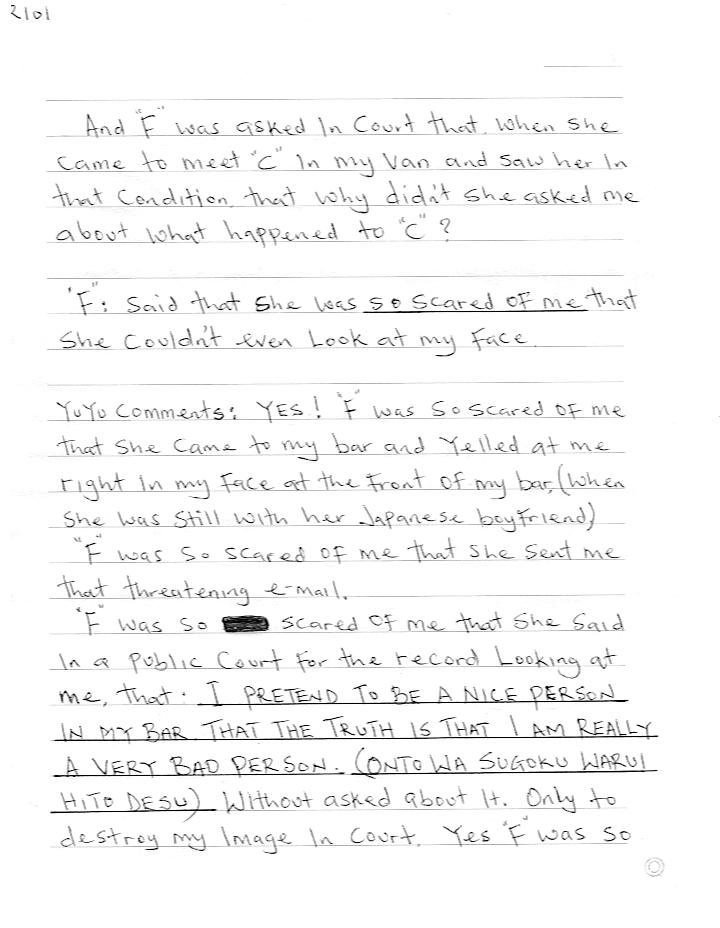 2101
And "F" was asked In Court that, when she
came to meet "C" In my Van and saw her In
that Condition, that why didn't she asked me
about what happened to "C"?
"F": Said that she was so scared OF me that
she couldn't even Look at my Face.
YuYu Comments: YES! "F" was So scared OF me
that She Came to my bar and Yelled at me
right In my Face at the Front OF my bar, (when
She was Still with her Japanese boyfriend)
"F" was So scared OF me that she sent me
that threatening e-mail.
"F" was so scared OF me that She Said
In a Public Court For the record Looking at
me, that: I PRETEND TO BE A NICE PERSON
IN MY BAR, THAT THE TRUTH IS THAT I AM REALLY
A VERY BAD PERSON. (ONTO WA SUGOKU WARUI
HITO DESU) Without asked about It. Only to
destroy my Image In Court. Yes "F" was so